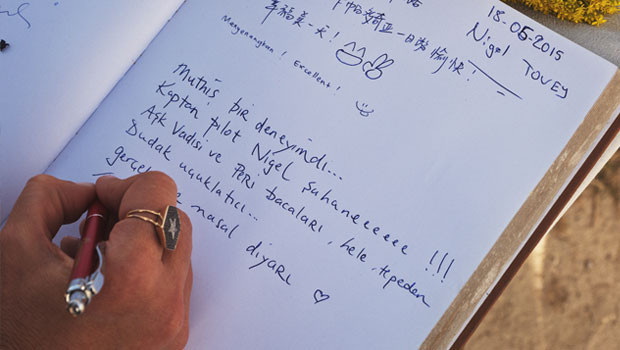 18-05-2015
Nigel TOVEY
幸福美一天!
卡帕多奇亚一日游愉快!
Excellent!
Muthiş bir deneyimdi...
Kaptan pilot Nigel şahaneeeeee !!!
Aşk Vadisi ve Peri bacaları, hele tepeden
Dudak uçuklatıcı...
masal diyarı ♡